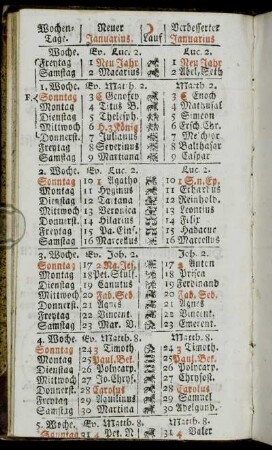 Wochen- Neuer ☽ Verbesserter
Tage. Januarius. Lauf Januarius.
Woche. Ev. Luc. 2. Luc. 2.
Freytag 1 Neu Jahr 1 Neu Jahr
Samstag 2 Macarius 2 Abel, Seth
1. Woche. Ev. Math 2. Math 2.
Sonntag 3 G Genofev 3 G Enoch
Montag 4 Titus B. 4 Mathusal
Dienstag 5 Thelesph. 5 Simeon
Mittwoch 6 H. 3 König 6 Ersch. Chr.
Donnerst. 7 Julianus 7 Melchior
Freytag 8 Severinus 8 Balthasar
Samstag 9 Martiana 9 Caspar
2. Woche. Ev. Luc. 2. Luc. 2.
Sonntag 10 1 Agatho 10 1 S. n. Ep.
Montag 11 Hyginus 11 Erhardus
Dienstag 12 Tatiana 12 Reinhold.
Mittwoch 13 Veronica 13 Leontius
Donnerst. 14 Hilarius 14 Felix
Freytag 15 Pa. Einf. 15 Habacuc
Samstag 16 Marcellus 16 Marcellus
3. Woche. Ev. Joh. 2. Joh. 2.
Sonntag 17 2 Na. Jes. 17 2 Anton
Montag 18 Pet. Stulf. 18 Prisca
Dienstag 19 Canutus 19 Ferdinand
Mittwoch 20 Fab. Seb. 20 Fab. Seb.
Donnerst. 21 Agnes 21 Agnes
Freytag 22 Vincent. 22 Vincent.
Samstag 23 Mar. V. 23 Emerent.
4. Woche. Ev. Matth. 8. Matth. 8.
Sonntag 24 3 Timoth 24 3 Timoth.
Montag 25 Paul. Bek. 25 Paul. Bek.
Dienstag 26 Polycarp. 26 Polycarp.
Mittwoch 27 Jo. Chrys. 27 Chrysost.
Donnerst. 28 Carolus 28 Carolus
Freytag 29 Aquilinus 29 Samuel
Samstag 30 Martina 30 Adelgund.
5. Woche. Ev. Matth. 8. Matth. 8.
Sonntag 31 4 Pet. N 31 4 Valer